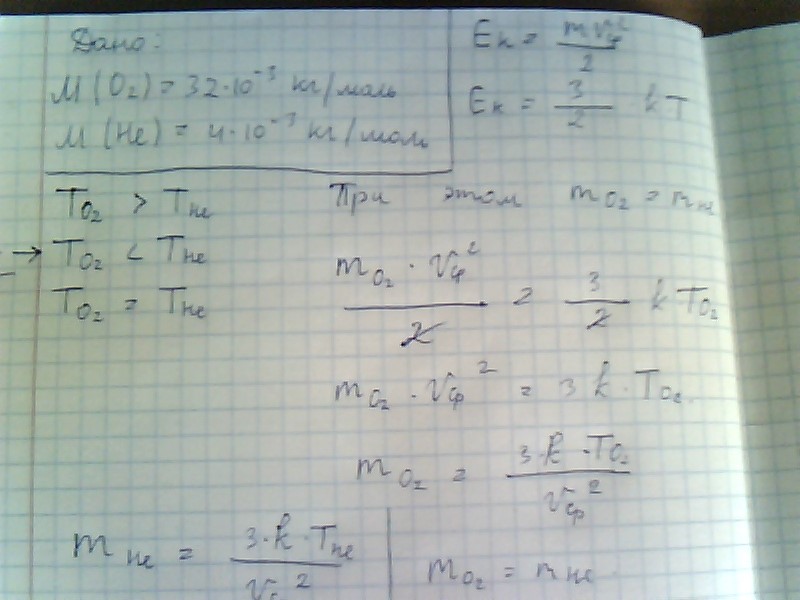 Дано:
M(O₂) = 32·10⁻³ кг/моль
M(He) = 4·10⁻³ кг/моль
Eк = mvср²/2
Eк = 3/2 kT
T O₂ > T He
→ T O₂ < T He
T O₂ = T He
При этом m O₂ = m He
m O₂ · vср²/2 = 3/2 k T O₂
m O₂ · vср² = 3k · T O₂
m O₂ = 3·k·T O₂/vср²
m He = 3·k·T He/v ²
m O₂ = m He